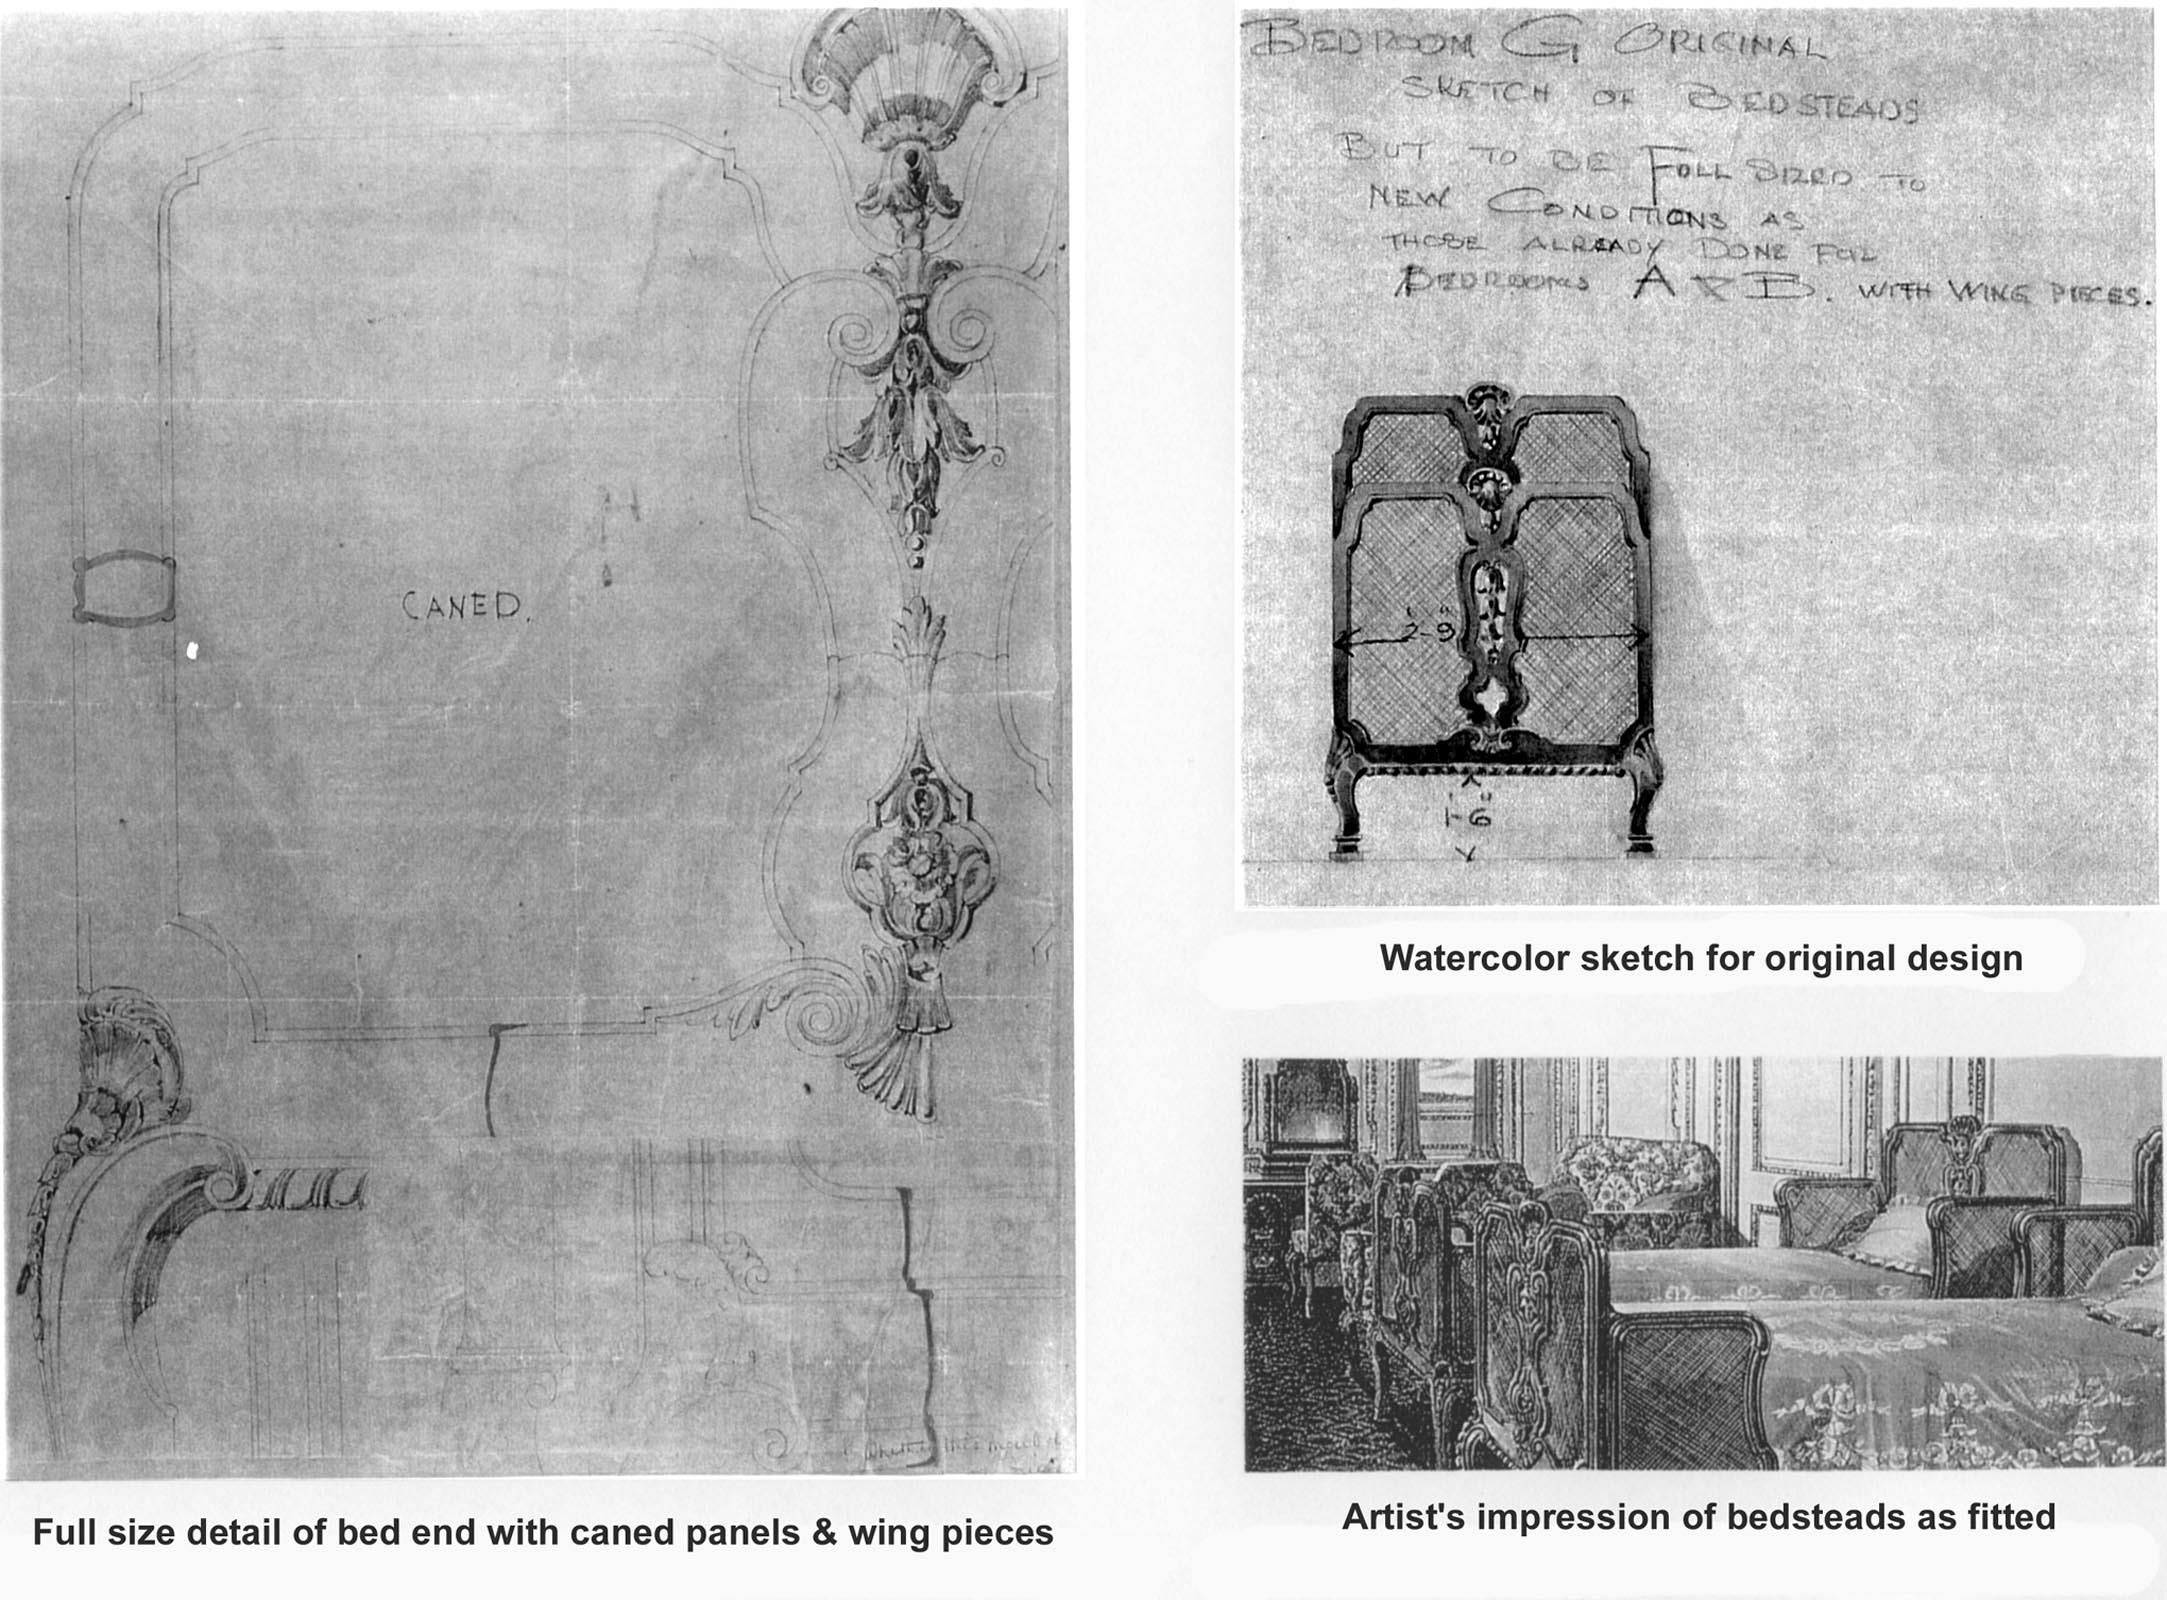 CANED.
Full size detail of bed end with caned panels & wing pieces
BEDROOM G ORIGINAL
SKETCH OF BEDSTEADS
BUT TO BE FULL SIZED TO
NEW CONDITIONS AS
THOSE ALREADY DONE FOR
BEDROOMS A & B. WITH WING PIECES.
2'-9"
1'-6"
Watercolor sketch for original design
Artist's impression of bedsteads as fitted